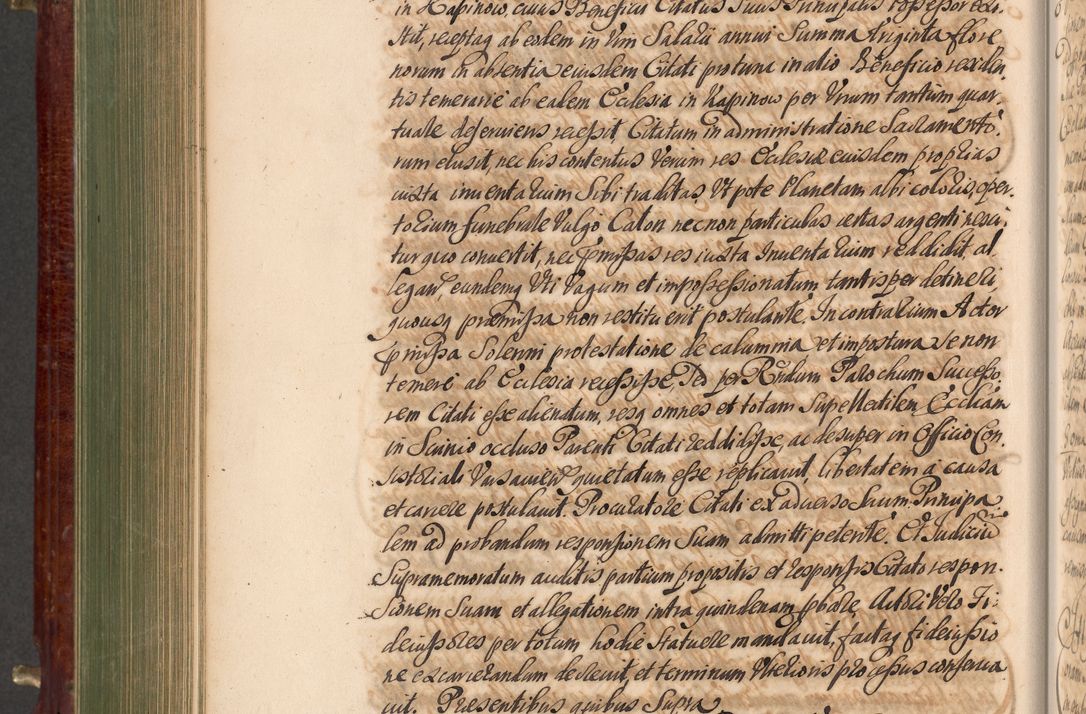 in Kapinow, cuius Beneficii Citatus Suus Principalis Possessor exti„
tit, receptaq ab eodem in Vim Salarii annui Summa triginta flore
norum in absentia eiusdem Citati protunc in alio Beneficio residen,
tis temerarie ab eadem Ecclesia in Kapinow per Vnum tantum quar„
tuale deserviens recessit, Citatum in administratione Sacramento,
rum elusit, nec his contentus Verum res Ecclesiæ eiusdem proprias
iuxta inventarium Sibi traditas, Vt pote Planetam albi coloris, oper„
torium funebrale Vulgo Caton necnon particulas certas argenti nesci„
tur quo convertit, nec præmissas res iuxta Inventarium reddidit, al
legan. eundemq Vti Vagum et impossessionatum tantisper detineri
quousq præmissa non restituerit postulante. In contrarium Actor
præmissa Solenni protestatione de calumnia et impostura Se non
temere ab Ecclesia recessisse, Sed per Rndum Parochum Successo,
rem Citati esse alienatum, resq omnes et totam Supellectilem Ecclicam
in Scrinio occluso Parenti Citati reddidisse, ac desuper in Officio Con„
sistoriali Varsavien quietatum esse replicavit, libertatem a causa
et carcere postulavit. Procuratore Citati ex adverso Suum Principa
lem ad probandum responsionem Suam admitti petente. Et Iudicium
Supramemoratum auditis partium propositis et responsis Citato respon„
sionem Suam et allegationem intra quindenam probare Actori Vero Fi„
deiussores per totum hodie Statuere mandavit, factaq fideiussio
ne excarcerandum decrevit, et terminum Vlterioris processus conserva
vit. Præsentibus quibus Supra